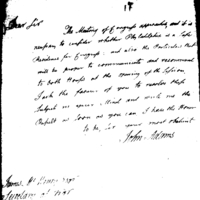 Dear Sir
The Meeting of Congress approaching and it is
necessary to consider whether Philadelphia is a safe
Residence for Congress, and also the Particulars that
will be proper to communicate and recommend
to both Houses at the opening of the Session,
I ask the favour of you to resolve these
Subjects in your Mind and write me the
Result as soon as you can. I have the Honor
to be, Sir your most obedient
John Adams
James McHenry Esqr
Secretary of War